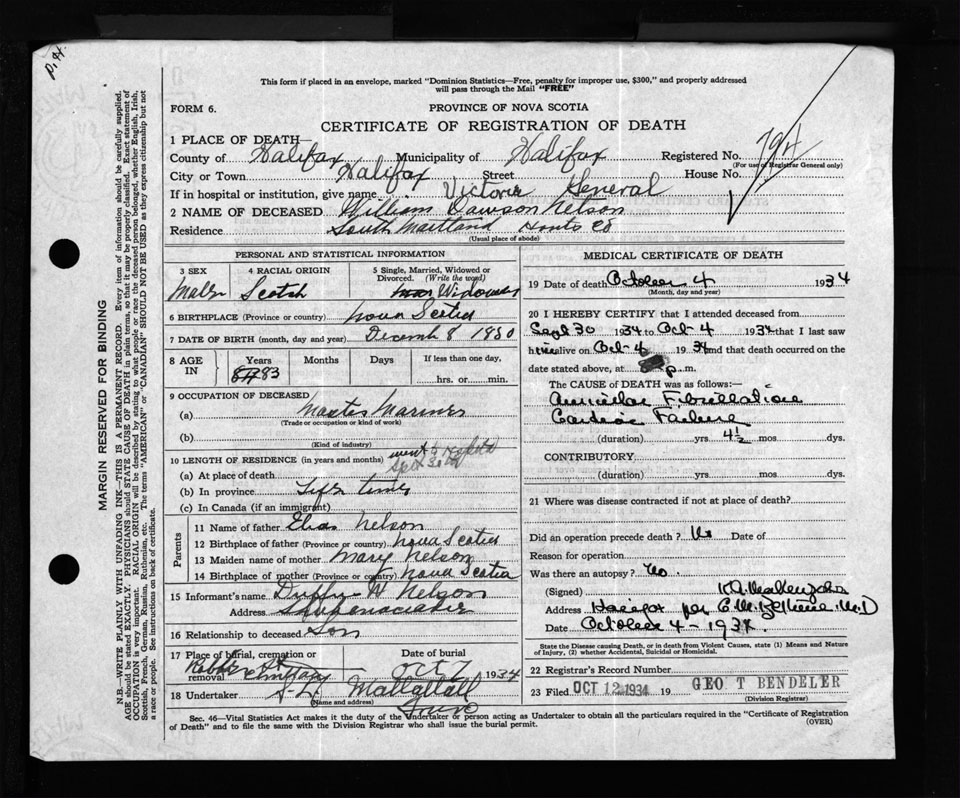 This form if placed in an envelope, marked "Dominion Statistics—Free, penalty for improper use, $300," and properly addressed
will pass through the Mail "FREE"
FORM 6.
PROVINCE OF NOVA SCOTIA
CERTIFICATE OF REGISTRATION OF DEATH
1 PLACE OF DEATH—
County of Halifax Municipality of Halifax Registered No. 794
(For use of Registrar General only)
City or Town Halifax Street House No.
If in hospital or institution, give name Victoria General
2 NAME OF DECEASED William Dawson Nelson
Residence South Maitland Hants Co
(Usual place of abode)
PERSONAL AND STATISTICAL INFORMATION
3 SEX 4 RACIAL ORIGIN 5 Single, Married, Widowed or Divorced. (Write the word)
Male Scotch Widowed
6 BIRTHPLACE (Province or country) Nova Scotia
7 DATE OF BIRTH (month, day and year) Decemb 8 1850
8 AGE IN Years Months Days If less than one day,
83 hrs. or min.
9 OCCUPATION OF DECEASED
(a) Master Mariner
(Trade or occupation or kind of work)
(b)
(Kind of industry)
10 LENGTH OF RESIDENCE (in years and months) went to
(a) At place of death
(b) In province Life time
(c) In Canada (if an immigrant)
Parents
11 Name of father Elias Nelson
12 Birthplace of father (Province or country) Nova Scotia
13 Maiden name of mother Mary Nelson
14 Birthplace of mother (Province or country) Nova Scotia
15 Informant's name H Nelson
Address Shubenacadie
16 Relationship to deceased Son
17 Place of burial, cremation or removal Date of burial
Oct 7 1934
18 Undertaker
(Name and address)
Truro
MEDICAL CERTIFICATE OF DEATH
19 Date of death October 4 1934
(Month, day and year)
20 I HEREBY CERTIFY that I attended deceased from
Sept 30 1934 to Oct-4 1934 that I last saw
him alive on Oct-4 1934 and that death occurred on the
date stated above, at p.m.
The CAUSE OF DEATH was as follows:—
Auricular Fibrillation
Cardiac Failure
(duration) yrs 4½ mos dys.
CONTRIBUTORY
(duration) yrs. mos. dys.
21 Where was disease contracted if not at place of death?
Did an operation precede death? No Date of
Reason for operation
Was there an autopsy? No.
(Signed)
Address Halifax per M.D
Date October 4 - 1934.
State the Disease causing Death, or in death from Violent Causes, state (1) Means and Nature of Injury, (2) whether Accidental, Suicidal or Homicidal.
22 Registrar's Record Number
23 Filed OCT 12 1934 19 GEO T BENDELER
(Division Registrar)
Sec. 46—Vital Statistics Act makes it the duty of the Undertaker or person acting as Undertaker to obtain all the particulars required in the "Certificate of Registration
of Death" and to file the same with the Division Registrar who shall issue the burial permit.
(OVER)
MARGIN RESERVED FOR BINDING
N.B.—WRITE PLAINLY WITH UNFADING INK—THIS IS A PERMANENT RECORD. Every item of information should be carefully supplied.
AGE should be stated EXACTLY. PHYSICIANS should STATE CAUSE OF DEATH in plain terms, so that it may be properly classified. Exact statement of
OCCUPATION is very important. RACIAL ORIGIN will be described by stating to what people or race the deceased person belonged, whether English, Irish,
Scottish, French, German, Russian, Ruthenian, etc. The terms "AMERICAN" or "CANADIAN" SHOULD NOT BE USED as they express citizenship but not
a race or people. See instructions on back of certificate.